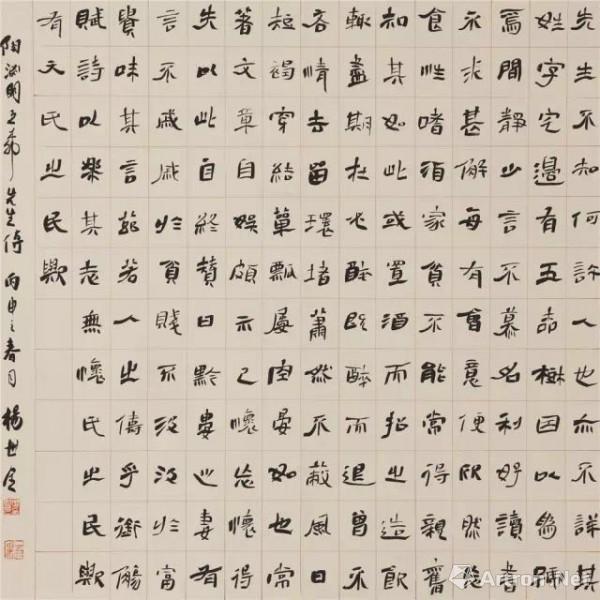 先生不知何許人也亦不詳其
姓字宅邊有五柳樹因以爲號
焉閒靜少言不慕名利好讀書
不求甚解每有會意便欣然忘
食性嗜酒家貧不能常得親舊
知其如此或置酒而招之造飲
輒盡期在必醉既醉而退曾不
吝情去留環堵蕭然不蔽風日
短褐穿結簞瓢屢空晏如也常
著文章自娛頗示己懷忘懷得
失以此自終贊曰黔婁之妻有
言不戚戚於貧賤不汲汲於富
貴味其言茲若人之儔乎銜觴
賦詩以樂其志無懷氏之民歟
有天氏之民歟
陶淵明五柳先生傳 丙申之春月 楊世